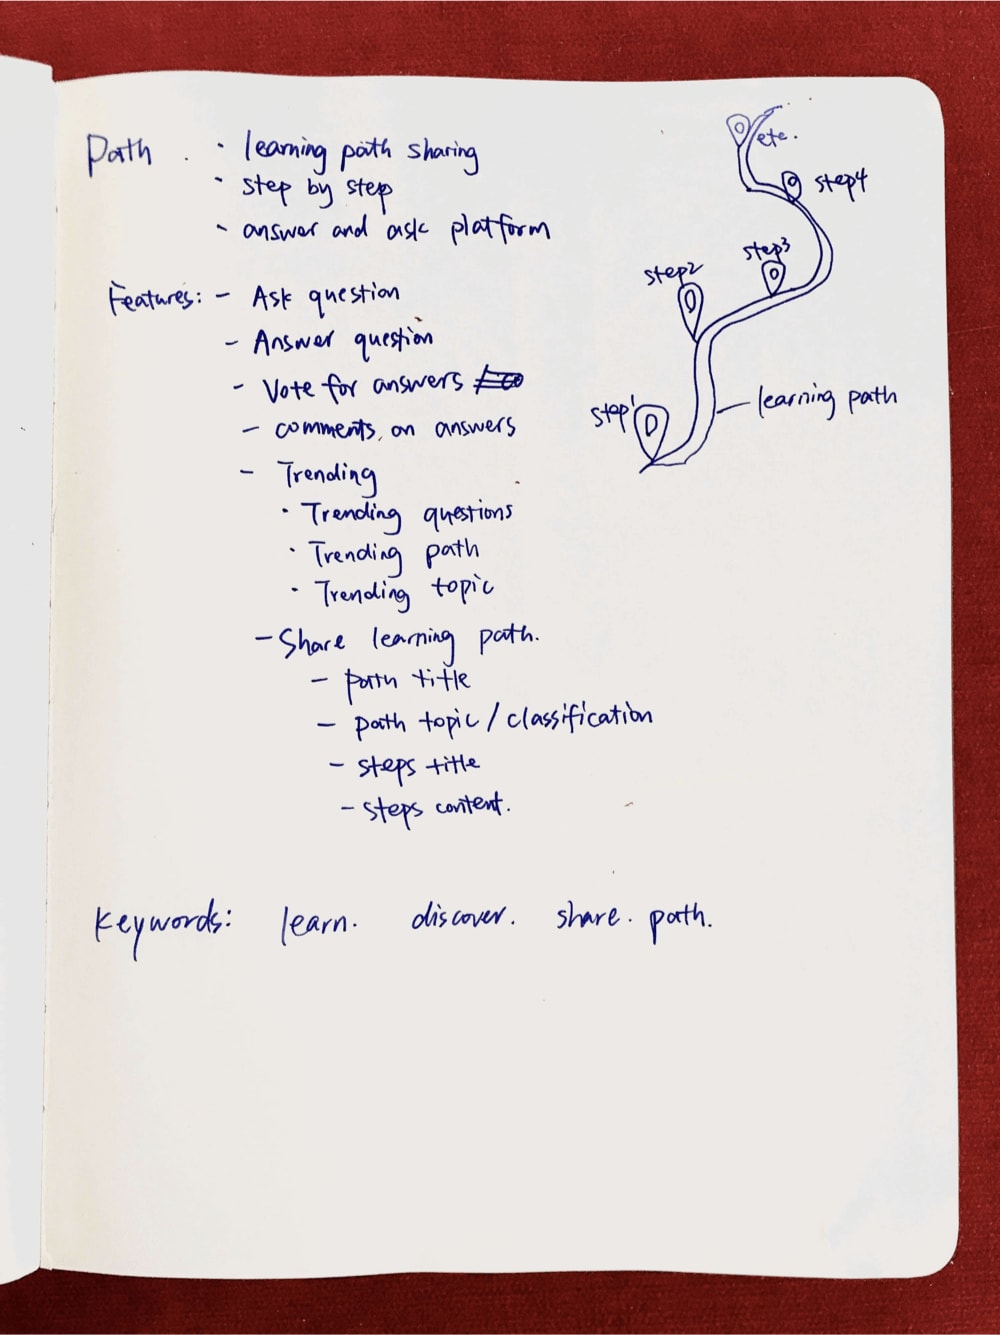 Path · learning path sharing
· step by step
- answer and ask platform
Features: - Ask question
- Answer question
- Vote for answers
- comments on answers
- Trending
· Trending questions
· Trending path
· Trending topic
- Share learning path.
- path title
- path topic / classification
- steps title
- steps content.
Keywords: learn. discover. share. path.
etc.
step4
step3
step2
step1
learning path